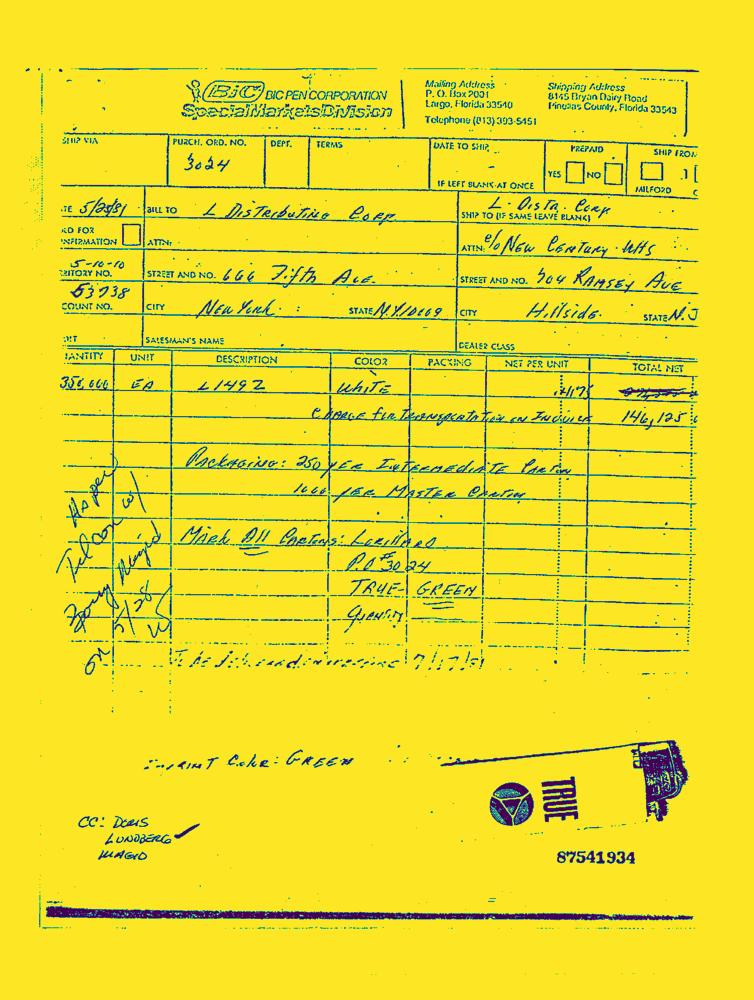 BIC BIC PEN CORPORATION
Special Markets Division
Mailing Address
P. O. Box 2031
Largo, Florida 33540
Telephone (813) 393-5451
Shipping Address
8145 Bryan Dairy Road
Pinellas County, Florida 33543
SHIP VIA
PURCH. ORD. NO.
3024
DEPT.
TERMS
DATE TO SHIP
IF LEFT BLANK AT ONCE
PREPAID
YES NO
SHIP FROM
MILFORD
TE 5/28/81
BILL TO L Distributing Corp.
L. Dista. Corp
SHIP TO (IF SAME LEAVE BLANK)
ATTN:
ATTN: c/o New Century WHS
5-10-10
RITORY NO.
STREET AND NO. 666 Fifth Ave.
STREET AND NO. 304 Ramsey Ave
53738
COUNT NO.
CITY New York STATE N.Y 10109
CITY Hillside STATE N.J
SALESMAN'S NAME
DEALER CLASS
ANTITY UNIT DESCRIPTION COLOR PACKING NET PER UNIT TOTAL NET
350,000 EA L1492 White
Charge for Transportation on Invoice 146,125
Packaging: 250 per Intermediate Carton
1000 per Master Carton
Mark All Cartons: Lorillard
P.O # 3024
TRUE- GREEN
Quantity
As per
Telcon w/
Magid
5/28
7/17/81
Imprint Color: GREEN
TRUE
CC: Doris
Lundberg
Magid
87541934